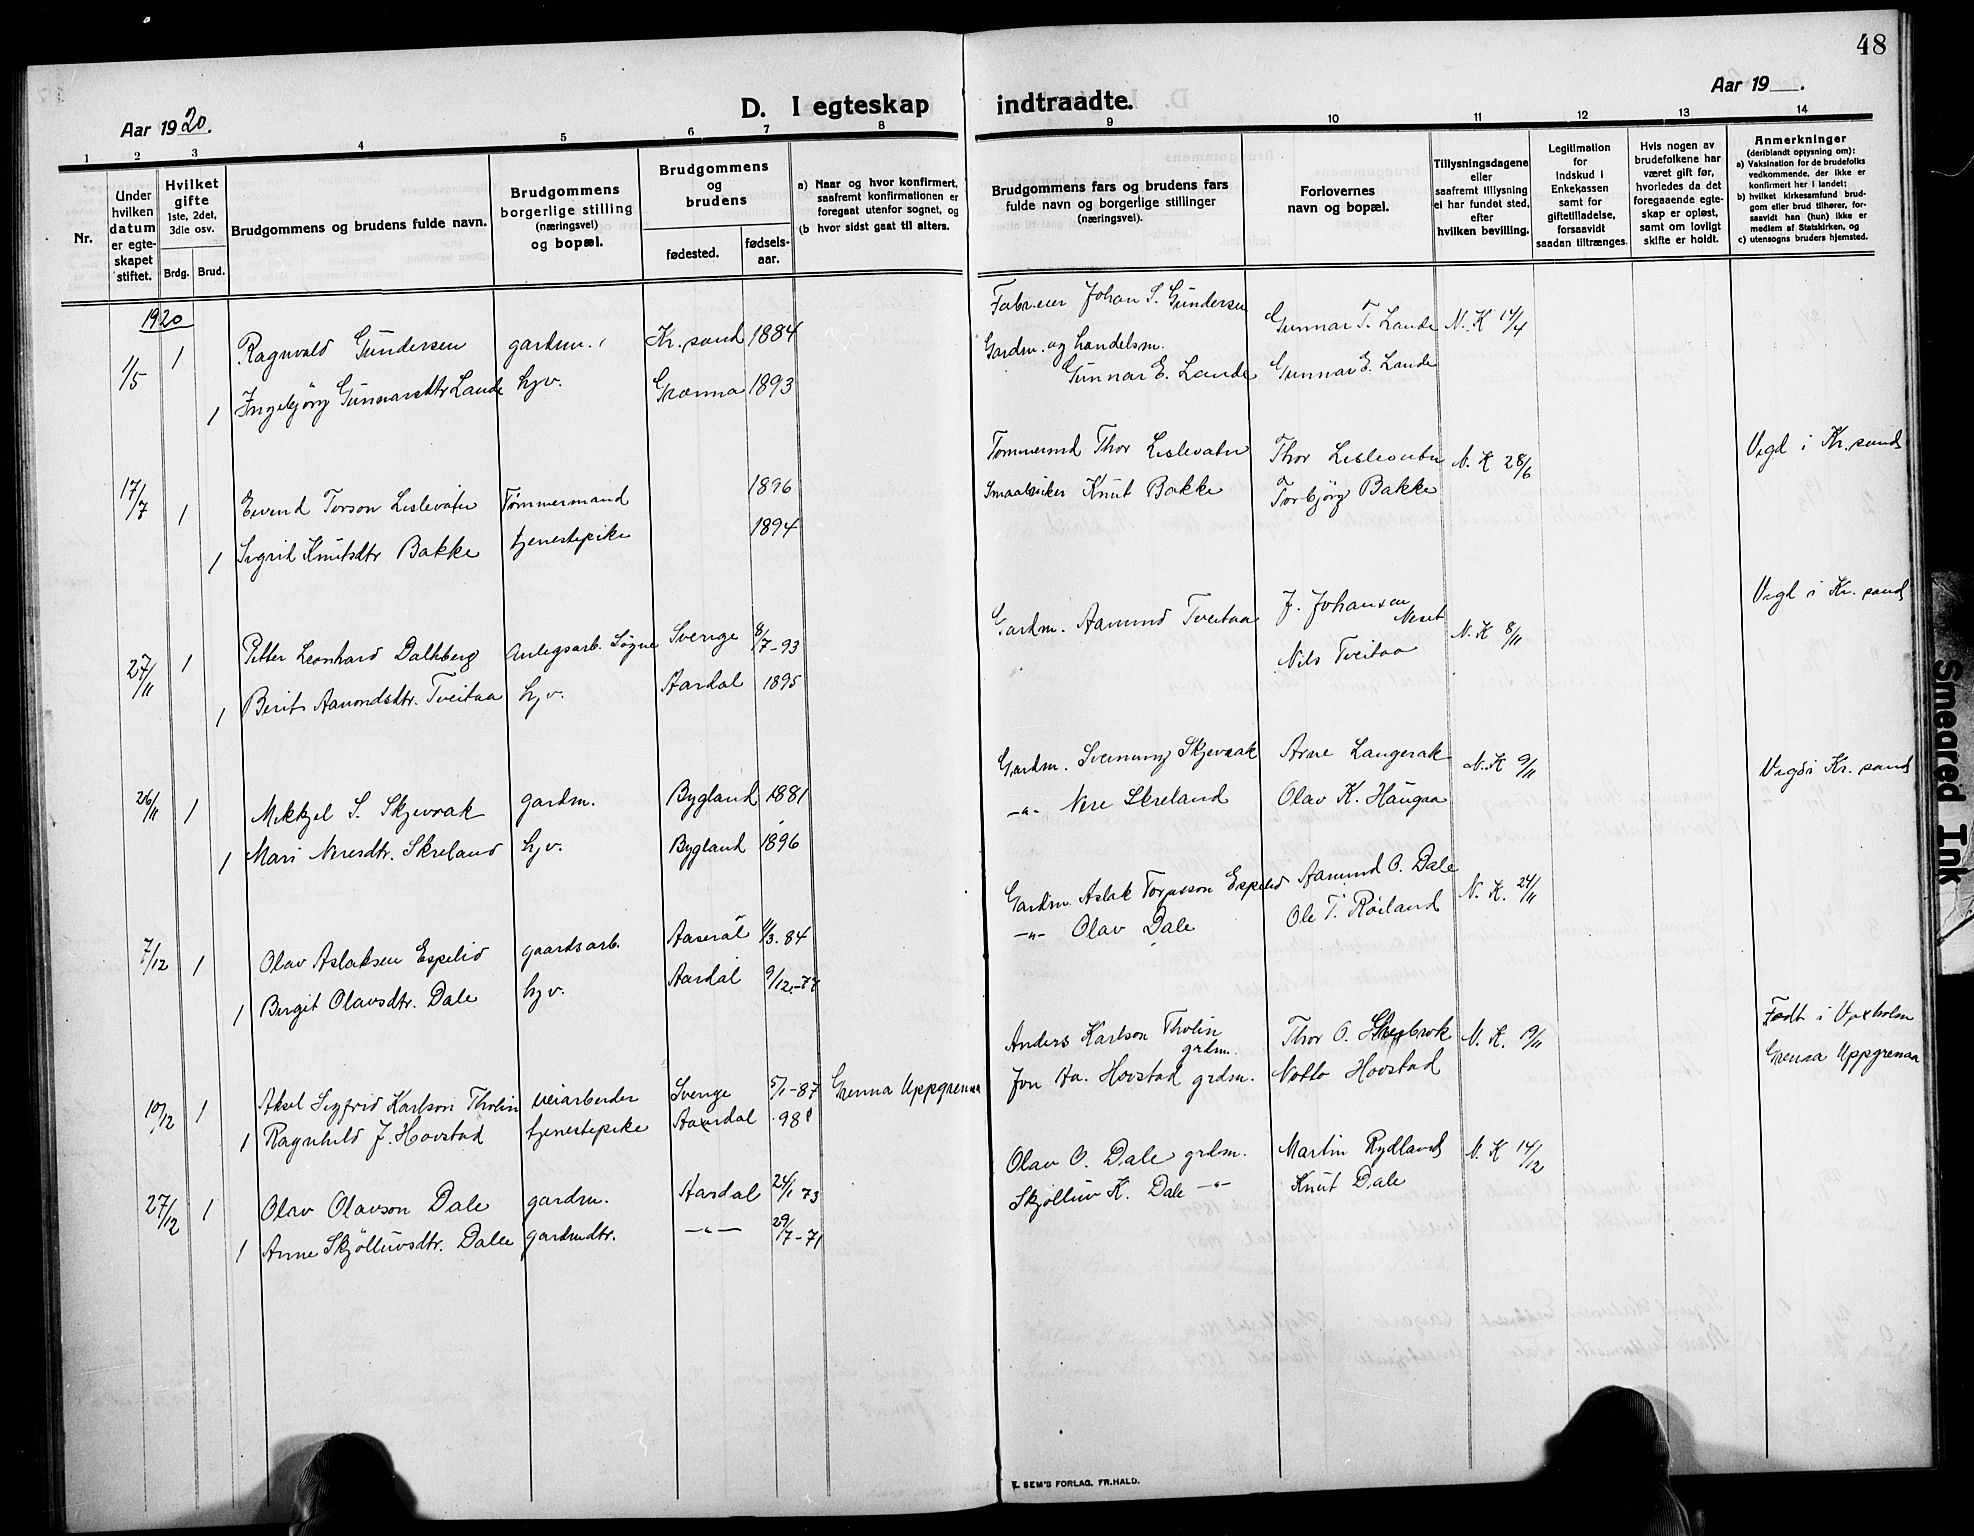 48
Aar 1920.
D. I egteskap indtraadte.
Aar 19 .
1 2 3 4 5 6 7 8 9 10 11 12 13 14
Nr.
Under hvilken datum er egteskapet stiftet.
Hvilket gifte 1ste, 2det, 3die osv.
Brdg. Brud.
Brudgommens og brudens fulde navn.
Brudgommens borgerlige stilling (næringsvei) og bopæl.
Brudgommens og brudens
fødested. fødsels-aar.
a) Naar og hvor konfirmert, saafremt konfirmationen er foregaat utenfor sognet, og
(b hvor sidst gaat til alters.
Brudgommens fars og brudens fars fulde navn og borgerlige stillinger (næringsvei).
Forlovernes navn og bopæl.
Tillysningsdagene eller saafremt tillysning ei har fundet sted, efter hvilken bevilling.
Legitimation for indskud i Enkekassen samt for giftetilladelse, forsaavidt saadan tiltrænges.
Hvis nogen av brudefolkene har været gift før, hvorledes da det foregaaende egteskap er opløst, samt om lovligt skifte er holdt.
Anmerkninger (deriblandt oplysning om):
a) Vaksination for de brudefolks vedkommende, der ikke er konfirmert her i landet;
b) hvilket kirkesamfund brudgom eller brud tilhører, forsaavidt han (hun) ikke er medlem af Statskirken, og
c) utensogns bruders hjemsted.
1920
1/5 1 Ragnvald Gundersen gardm. Kr.sand 1884 Fabr.eier Johan S. Gundersen Gunnar T. Lande N. K 14/4
1 Ingebjörg Gunnarsdtr Lande hjv. 1893 Gardm. og handelsm. Gunnar E. Lande Gunnar E. Lande
17/7 1 Eivend Torson Lislevatn Tømmermand 1896 Tømmermd Thor Lislevatn Thor Lislevatn N. K 28/6 Vigd i Kr.sand
1 Sigrid Knutsdtr Bakke tjenestepike 1894 Knut Bakke Torbjörg Bakke
27/11 1 Petter Leonhard Dalhberg Anlegsarb. Søgne Sverige 8/7-93 Gardm. Aamund Tveitaa J. Johansen Neset N. K 8/11 Vigd i Kr. sand
1 Berit Aamondsdtr. Tveitaa hjv. Aardal 1895 Nils Tveitaa
26/11 1 Mikkjel S. Skjevrak gardm. Bygland 1881 Gardm. Sveinung Skjevrak Arne Langerak N. K 9/11 Vigd i Kr. sand
1 Mari Neresdtr. Skreland hjv. Bygland 1896 -"- Nere Skreland Olav K. Haugaa
7/12 1 Olav Aslaksen Espelid gaardsarb. Aaseral 11/3. 84 Gardm. Aslak Torjusson Espelid Aamund O. Dale N. K. 24/11
1 Bergit Olavsdtr. Dale hjv. Aardal 9/12-77 -"- Olav Dale Ole T. Röiland
10/12 1 Aksel Sigfrid Karlson Tholin veiarbeider Sverige 5/1-87 Grenna Uppgrenna Anders Karlson Tholin grdm. Thor O. N. K. 19/11 Födt i
1 Ragnhild J. Hovstad tjenestepike Aardal 98 Jon Aa. Hovstad grdm. Notto Hovstad Grenna Uppgrenna
27/12 1 Olav Olavson Dale gardm. Aardal 24/1 73 Olav O. Dale grdm. Martin Rydland N. K 14/12
1 Anne Skjölluvsdtr. Dale gardmdtr. -"- 29/7-71 Skjölluv K. Dale -"- Knut Dale
E. SEM'S FORLAG, FR.HALD.
Smeared Ink